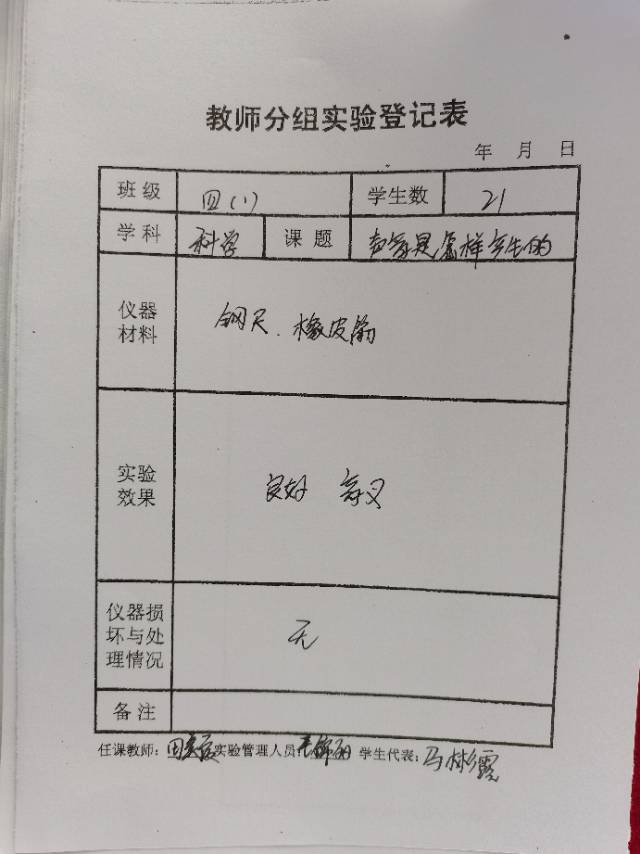 教师分组实验登记表
年 月 日
班级 四(1) 学生数 21
学科 科学 课题 声音是怎样产生的
仪器材料 钢尺、橡皮筋
实验效果 良好
仪器损坏与处理情况 无
备注
任课教师: 实验管理人员: 学生代表: 马彬露